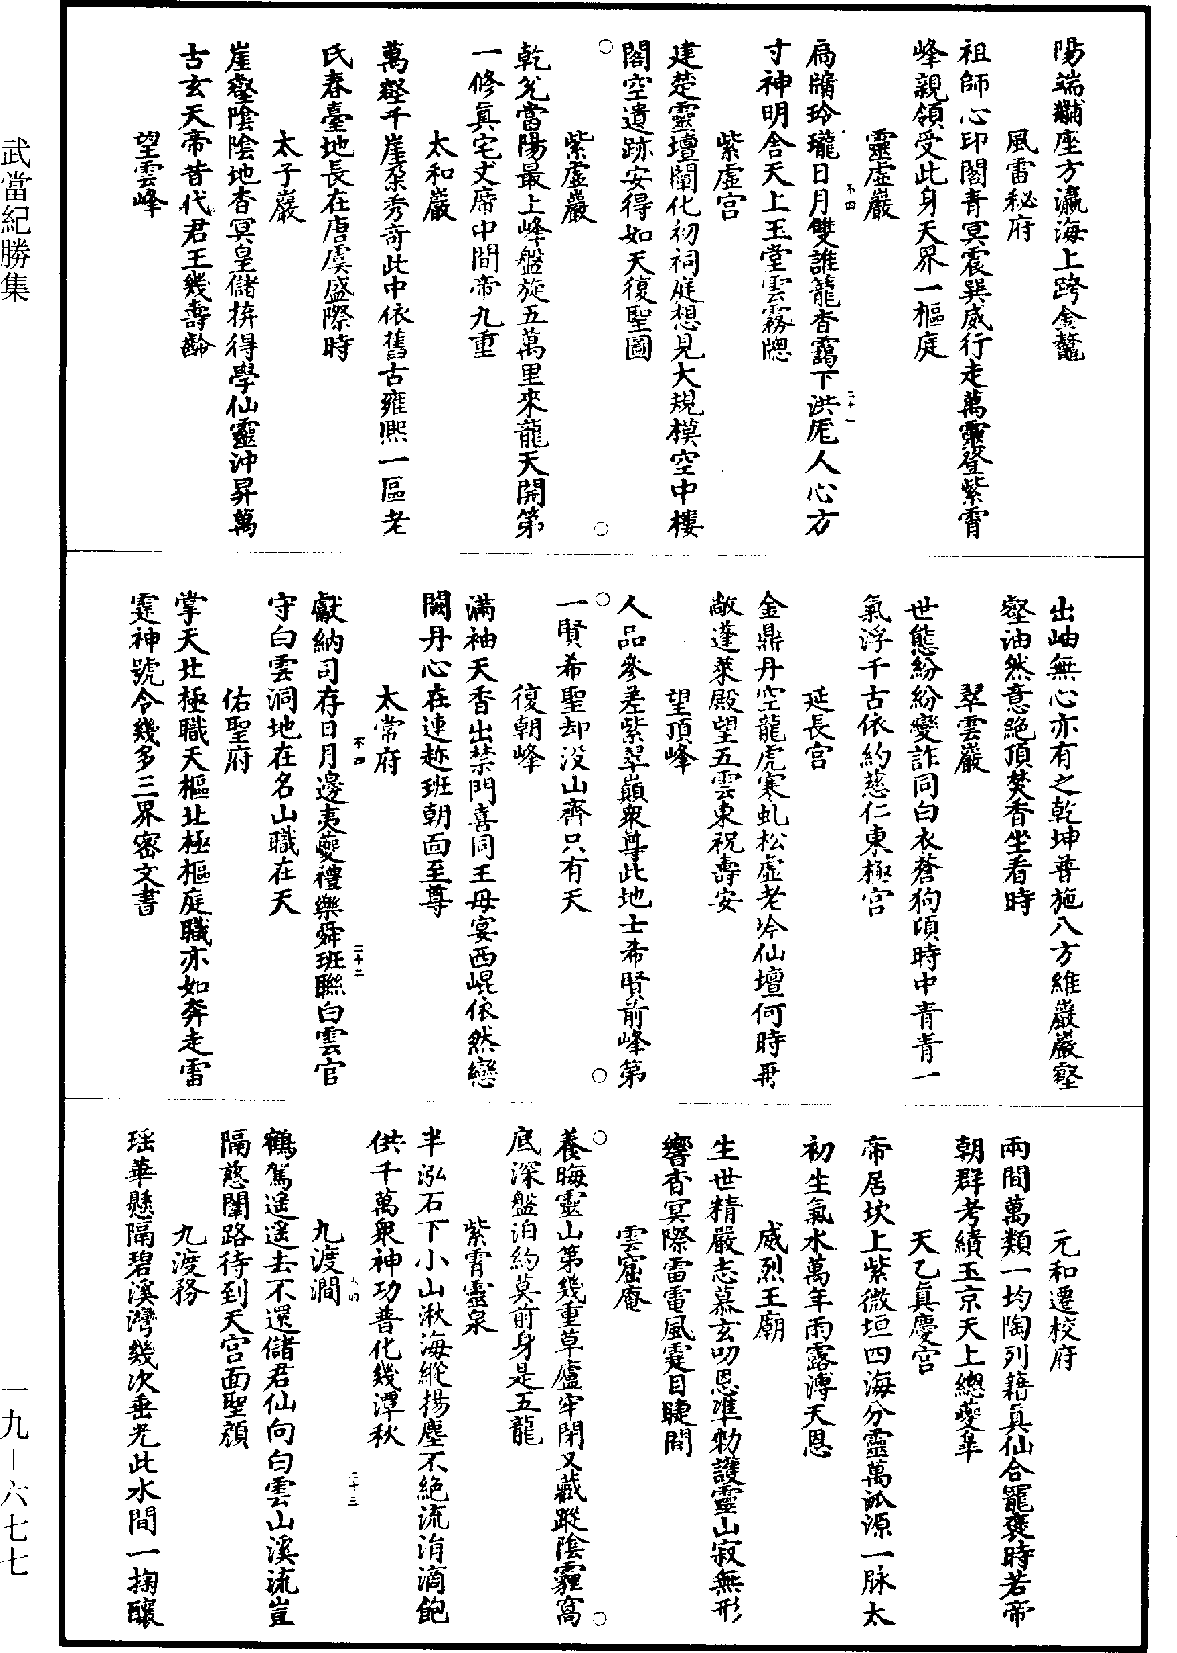 陽端黼座方瀛海上跨金鼇
風雷秘府
祖師心印閣青冥震巽威行走萬靈登紫霄
峰親領受此身天界一樞庭
靈虛巖
扃牖玲瓏日月雙誰籠香靄下洪厖人心方
寸神明舍天上玉堂雲霧牕
紫虛宮
建楚靈壇闡化初祠庭想見大規模空中樓
閣空遺跡安得如天復聖圖
紫虛巖
乾兊當陽最上峰盤旋五萬里來龍天開第
一修真宅丈席中間帝九重
太和巖
萬壑千崖朶秀奇此中依舊古雍熙一區老
氏春臺地長在唐虞盛際時
太子巖
崖壑陰陰地杳冥皇儲捹得學仙靈沖昇萬
古玄天帝昔代君王幾壽齡
望雲峰
出岫無心亦有之乾坤普施八方維巖巖壑
壑油然意絶頂焚香坐看時
翠雲巖
世態紛紛變詐同白衣蒼狗頃時中青青一
氣浮千古依約慈仁東極宮
延長宮
金鼎丹空龍虎寒虬松虛老吟仙壇何時再
敞蓬萊殿望五雲東祝壽安
望頂峰
人品參差紫翠巔衆尊此地士希賢前峰第
一賢希聖却没山齊只有天
復朝峰
滿袖天香出禁門喜同王母宴西崐依然戀
闕丹心在連趂班朝面至尊
太常府
獻納司存日月邊夷夔禮樂舜班聯白雲官
守白雲洞地在名山職在天
佑聖府
掌天北極職天樞北極樞庭職亦如奔走雷
霆神號令幾多三界密文書
元和遷校府
兩間萬類一均陶列籍真仙合寵褒時若帝
朝群考績玉京天上總夔皐
天乙真慶宮
帝居坎上紫微垣四海分靈萬派源一脉太
初生氣水萬年雨露溥天恩
威烈王廟
生世精嚴志慕玄叨恩準勑護靈山寂無形
響杳冥際雷電風霆目睫間
雲窟庵
養晦靈山第幾重草廬牢閉又藏蹤陰霾窩
底深盤泊約莫前身是五龍
紫霄靈泉
半泓石下小山湫海縱揚塵不絶流涓滴飽
供千萬衆神功普化幾潭秋
九渡澗
鶴駕遥遥去不還儲君仙向白雲山溪流豈
隔慈闈路待到天宮面聖顔
九渡務
瑶華懸隔碧溪灣幾次垂老此水間一掬釀
武當紀勝集
一九—六七七
不四
二十一
不四
二十二
二十三